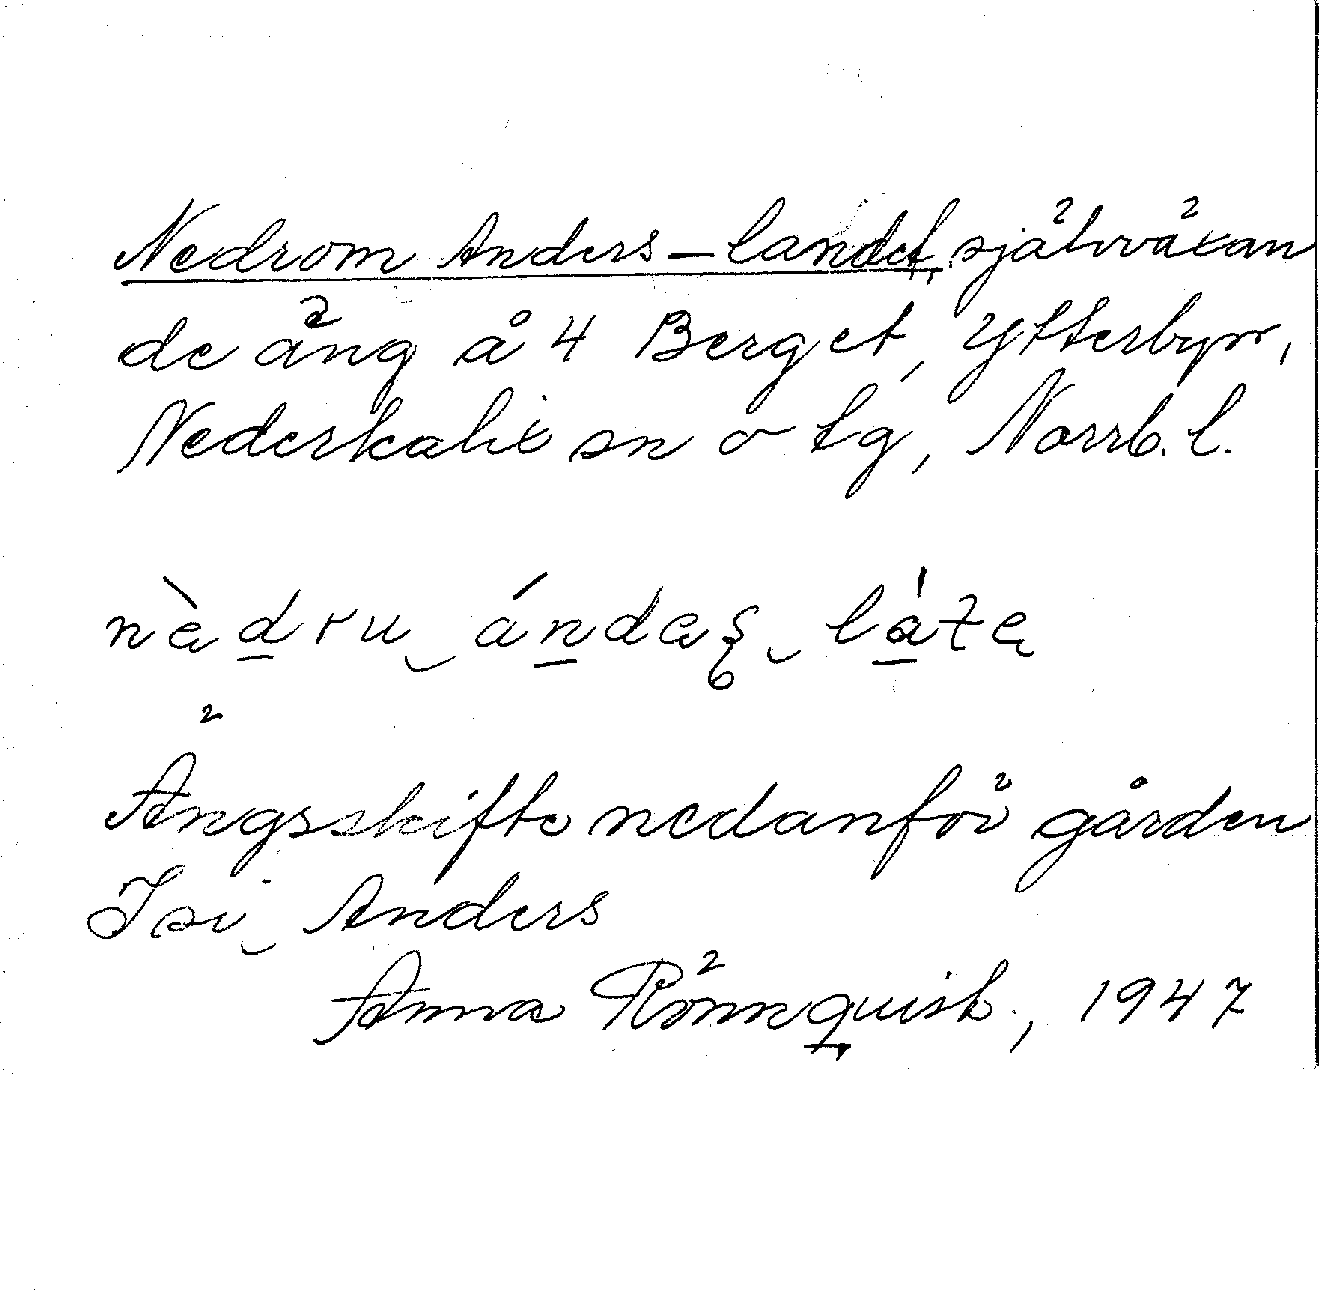 Nedrom Anders-landet, självväxan
de äng å 4 Berget, Ytterbyn,
Nederkalix sn o tg, Norrb. l.
Ängsskifte nedanför gården
Isi Anders
Anna Rönnquist, 1947